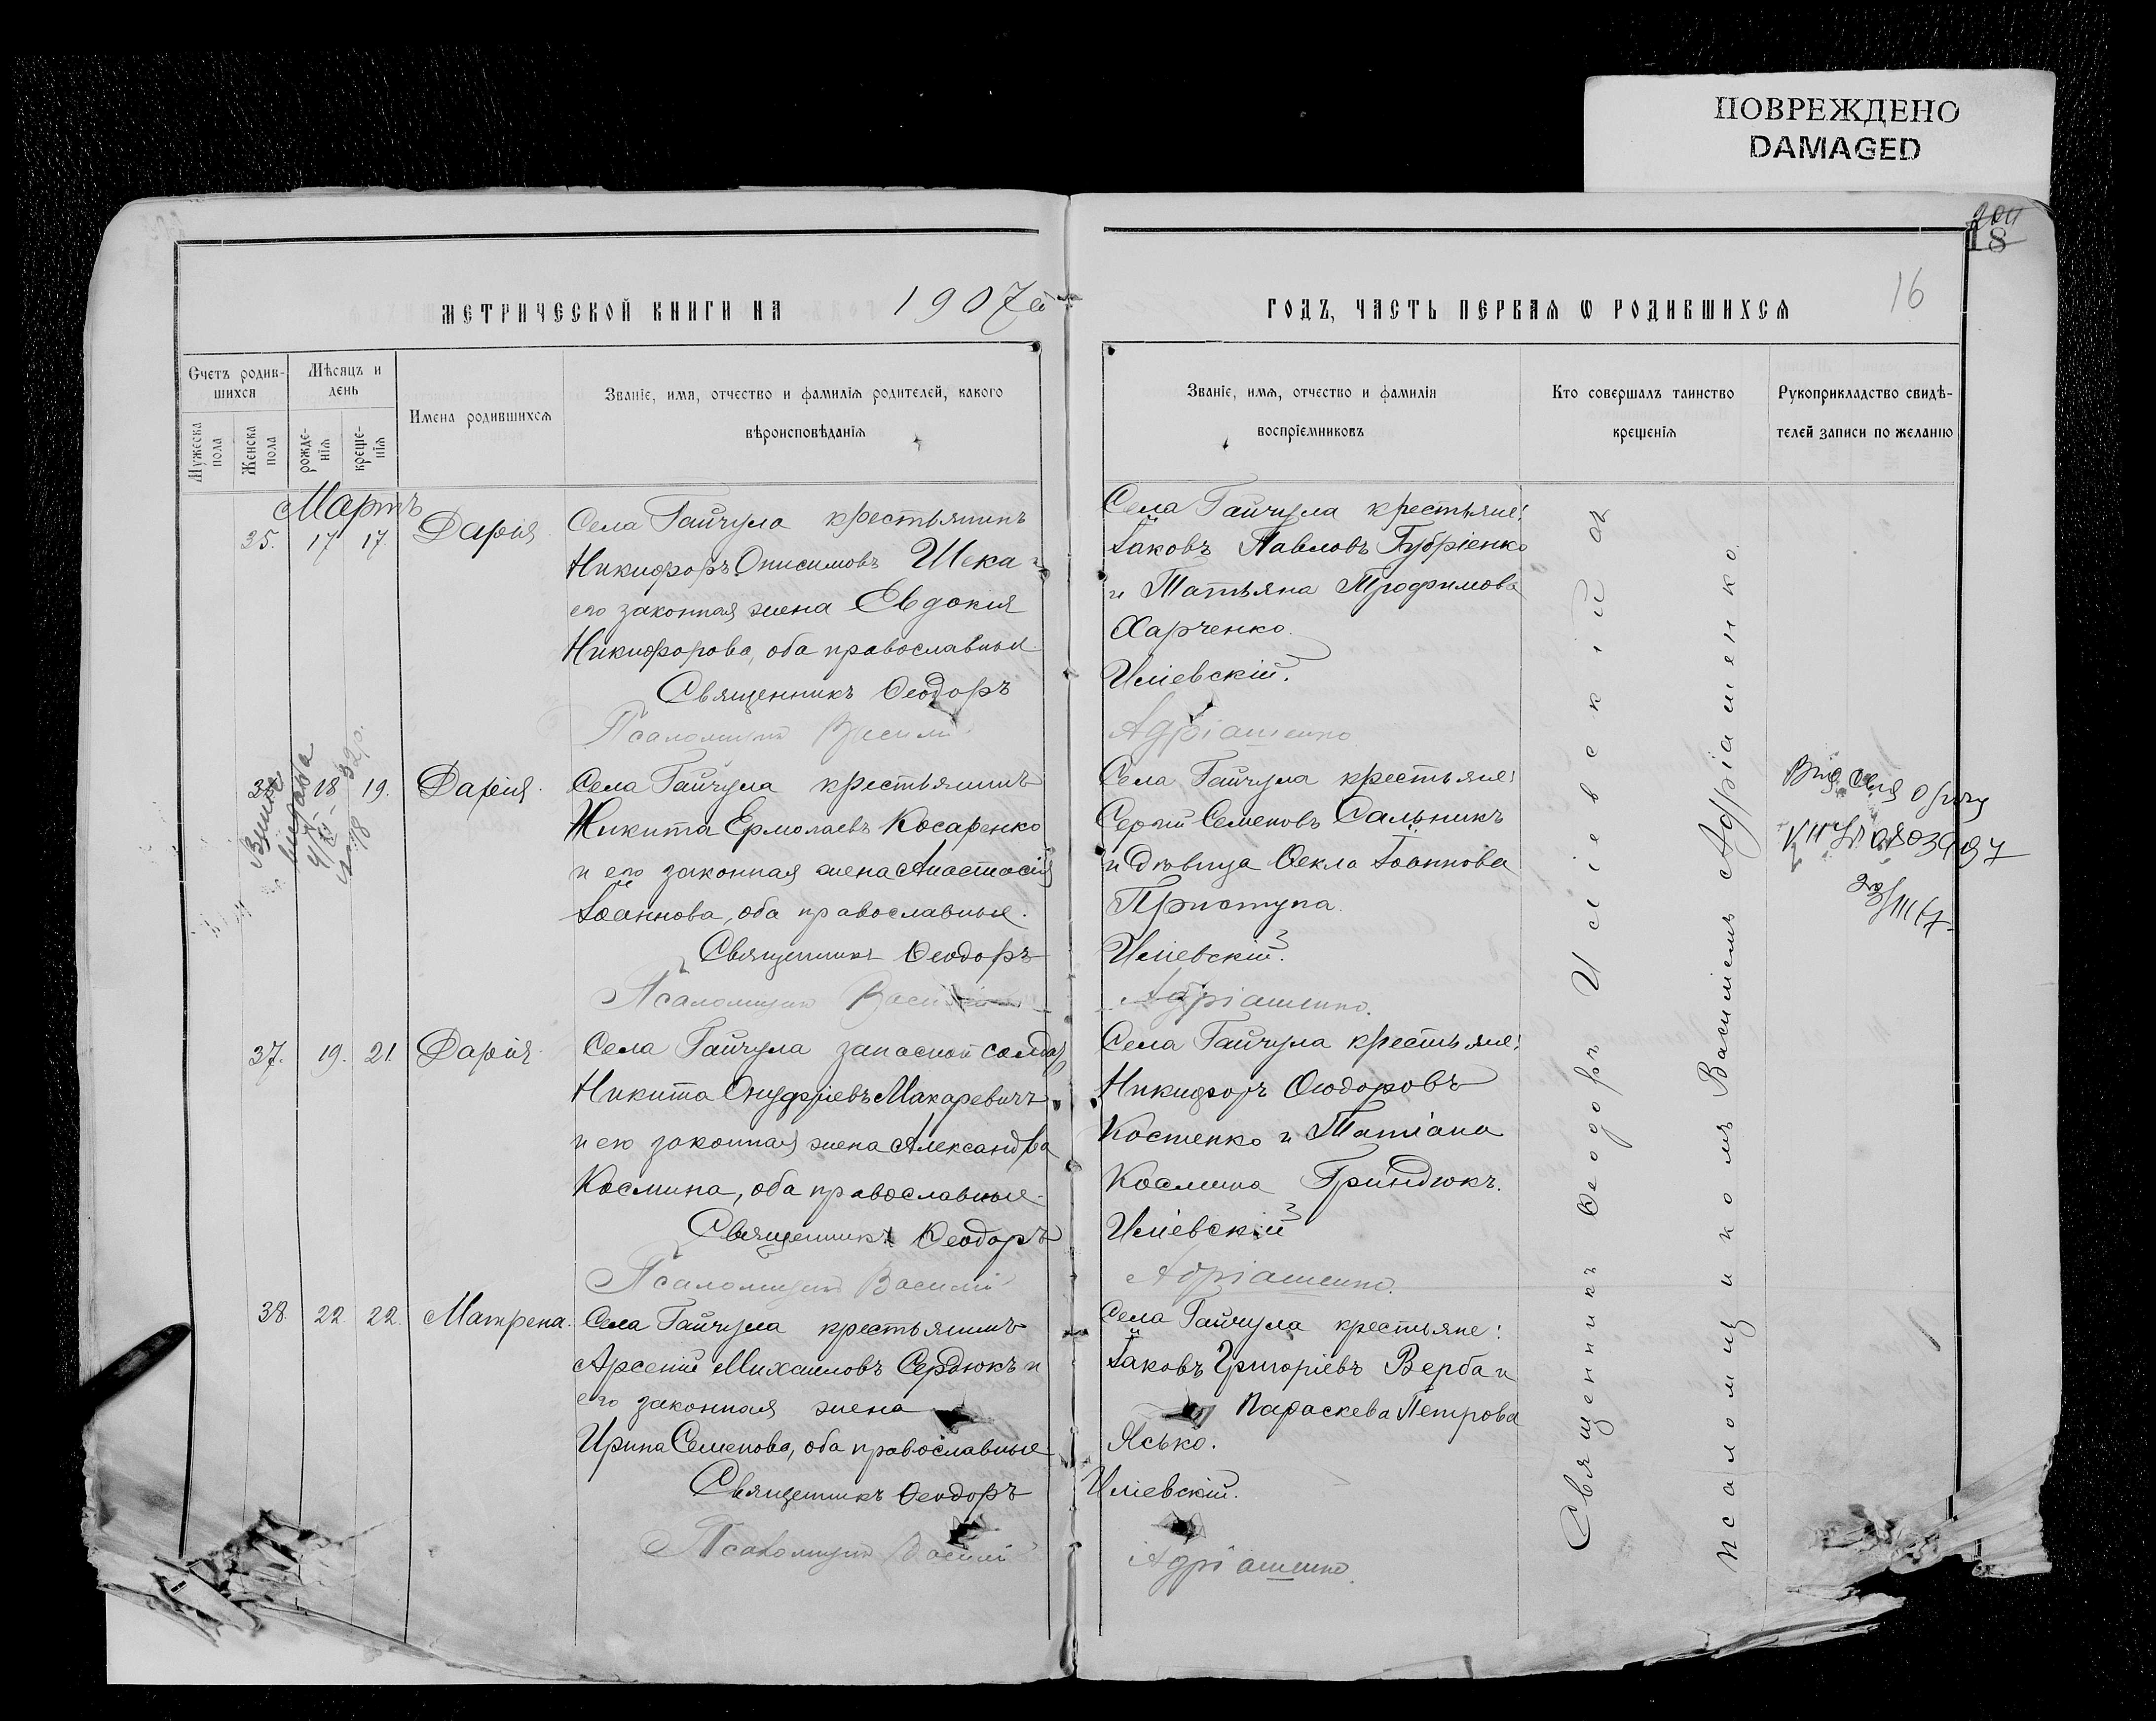 ПОВРЕЖДЕНО
DAMAGED
18
16
МЕТРИЧЕСКОЙ КНИГИ НА 1907й
ГОДЪ, ЧАСТЬ ПЕРВАЯ Ѡ РОДИВШИХСЯ
Счетъ родив-
шихся
Мужеска пола
Женска пола
Мѣсяцъ и
день
рожде-
нія
креще-
нія
Имена родившихся
Званіе, имя, отчество и фамилія родителей, какого
вѣроисповѣданія
Званіе, имя, отчество и фамилія
воспріемниковъ
Кто совершалъ таинство
крещенія
Рукоприкладство свидѣ-
телей записи по желанію
Мартъ
35. 17 17. Дарія
Села Гайчула крестьянинъ
Никифоръ Онисимовъ Шека и
его законная жена Евдокія
Никифорова, оба православные.
Священникъ Ѳеодоръ
Псаломщикъ Василій
Села Гайчула крестьяне:
Іаковъ Павловъ Губріенко
и Татьяна Трофимова
Харченко.
Иліевскій.
Адріашенко
18 19. Дарія.
Села Гайчула крестьянинъ
Никита Ермолаевъ Косаренко
и его законная жена Анастасія
Іоаннова, оба православные.
Священникъ Ѳеодоръ
Псаломщикъ Василій
Села Гайчула крестьяне:
Сергій Семеновъ Сальникъ
и дѣвица Ѳекла Іоаннова
Приступа.
Иліевскій.
Адріашенко.
37. 19. 21. Дарія.
Села Гайчула запасной солдатъ
Никита Онуфріевъ Макаревичъ
и его законная жена Александра
Космина, оба православные.
Священникъ Ѳеодоръ
Псаломщикъ Василій
Села Гайчула крестьяне:
Никифоръ Ѳеодоровъ
Костенко и Татіана
Космина Гриндюкъ.
Иліевскій
Адріашенко.
38. 22 22. Матрена.
Села Гайчула крестьянинъ
Арсеній Михаиловъ Сердюкъ и
его законная жена
Ирина Семенова, оба православные
Священникъ Ѳеодоръ
Псаломщикъ Василій
Села Гайчула крестьяне:
Іаковъ Григоріевъ Верба и
Параскева Петрова
Ясько.
Иліевскій.
Адріашенко.
Священникъ Ѳеодоръ Иліевскій
псаломщикомъ Василіемъ Адріашенко.